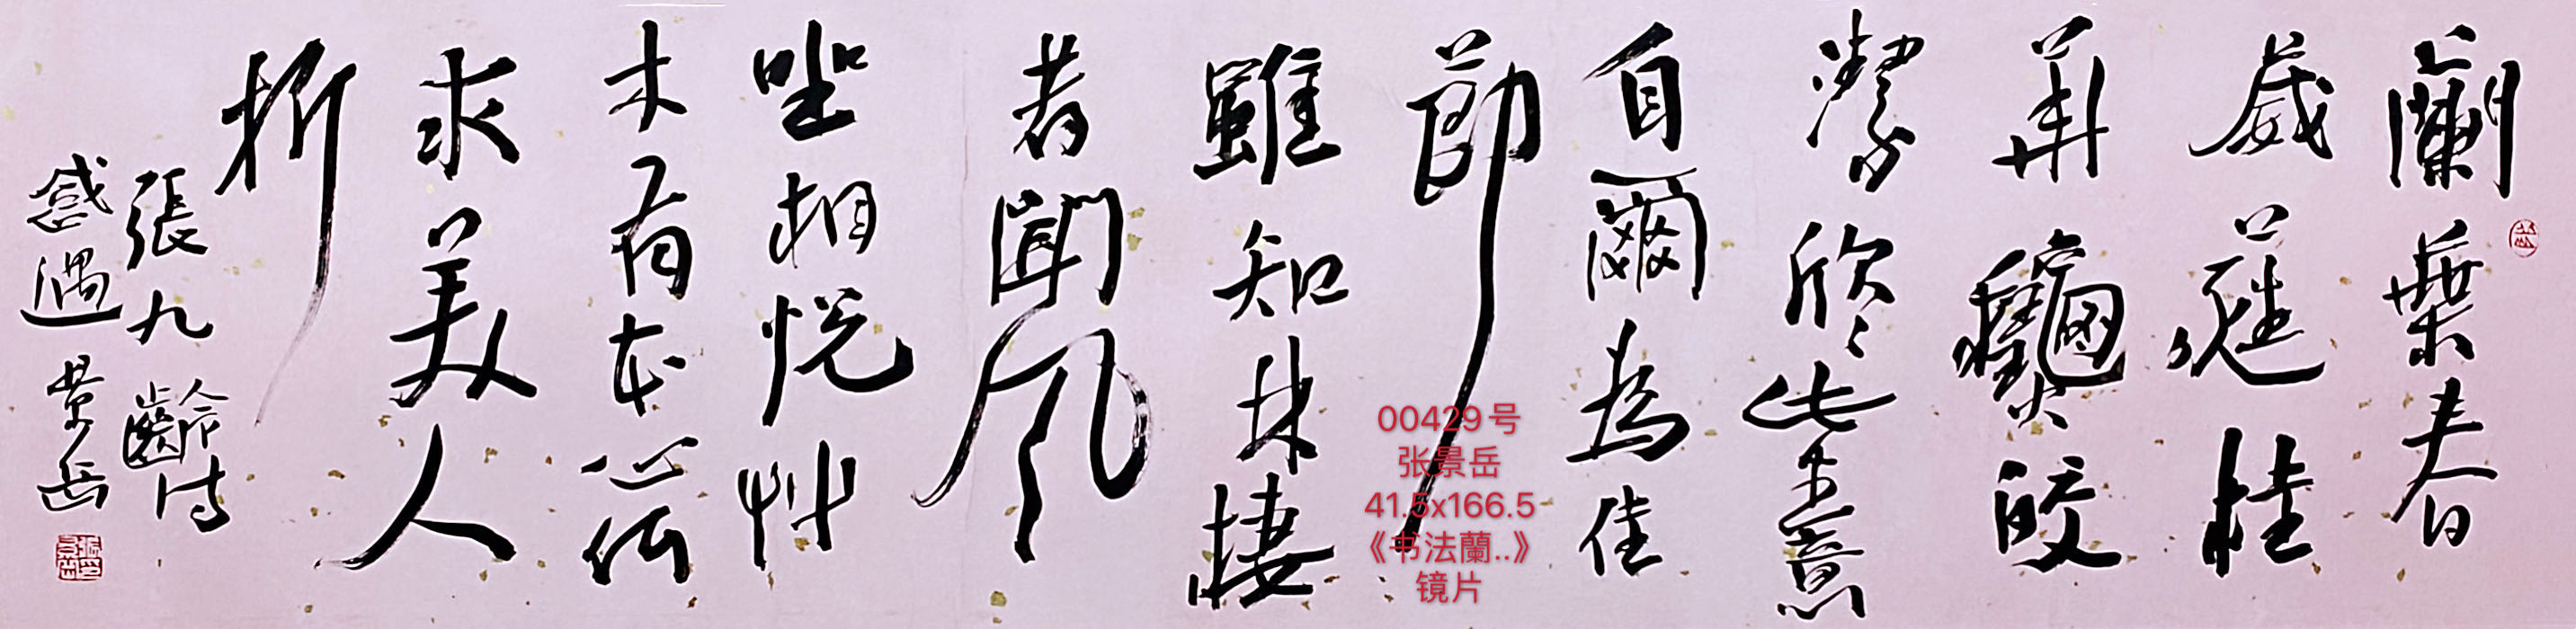 蘭葉春
葳蕤桂
華龝皎
潔欣〻此生意
自爾為佳
節
雖知林棲
者聞风
坐相悦艸
木有本心何
求美人
折
張九齡詩
感遇 景岳
00429号
张景岳
41.5x166.5
《书法蘭..》
镜片